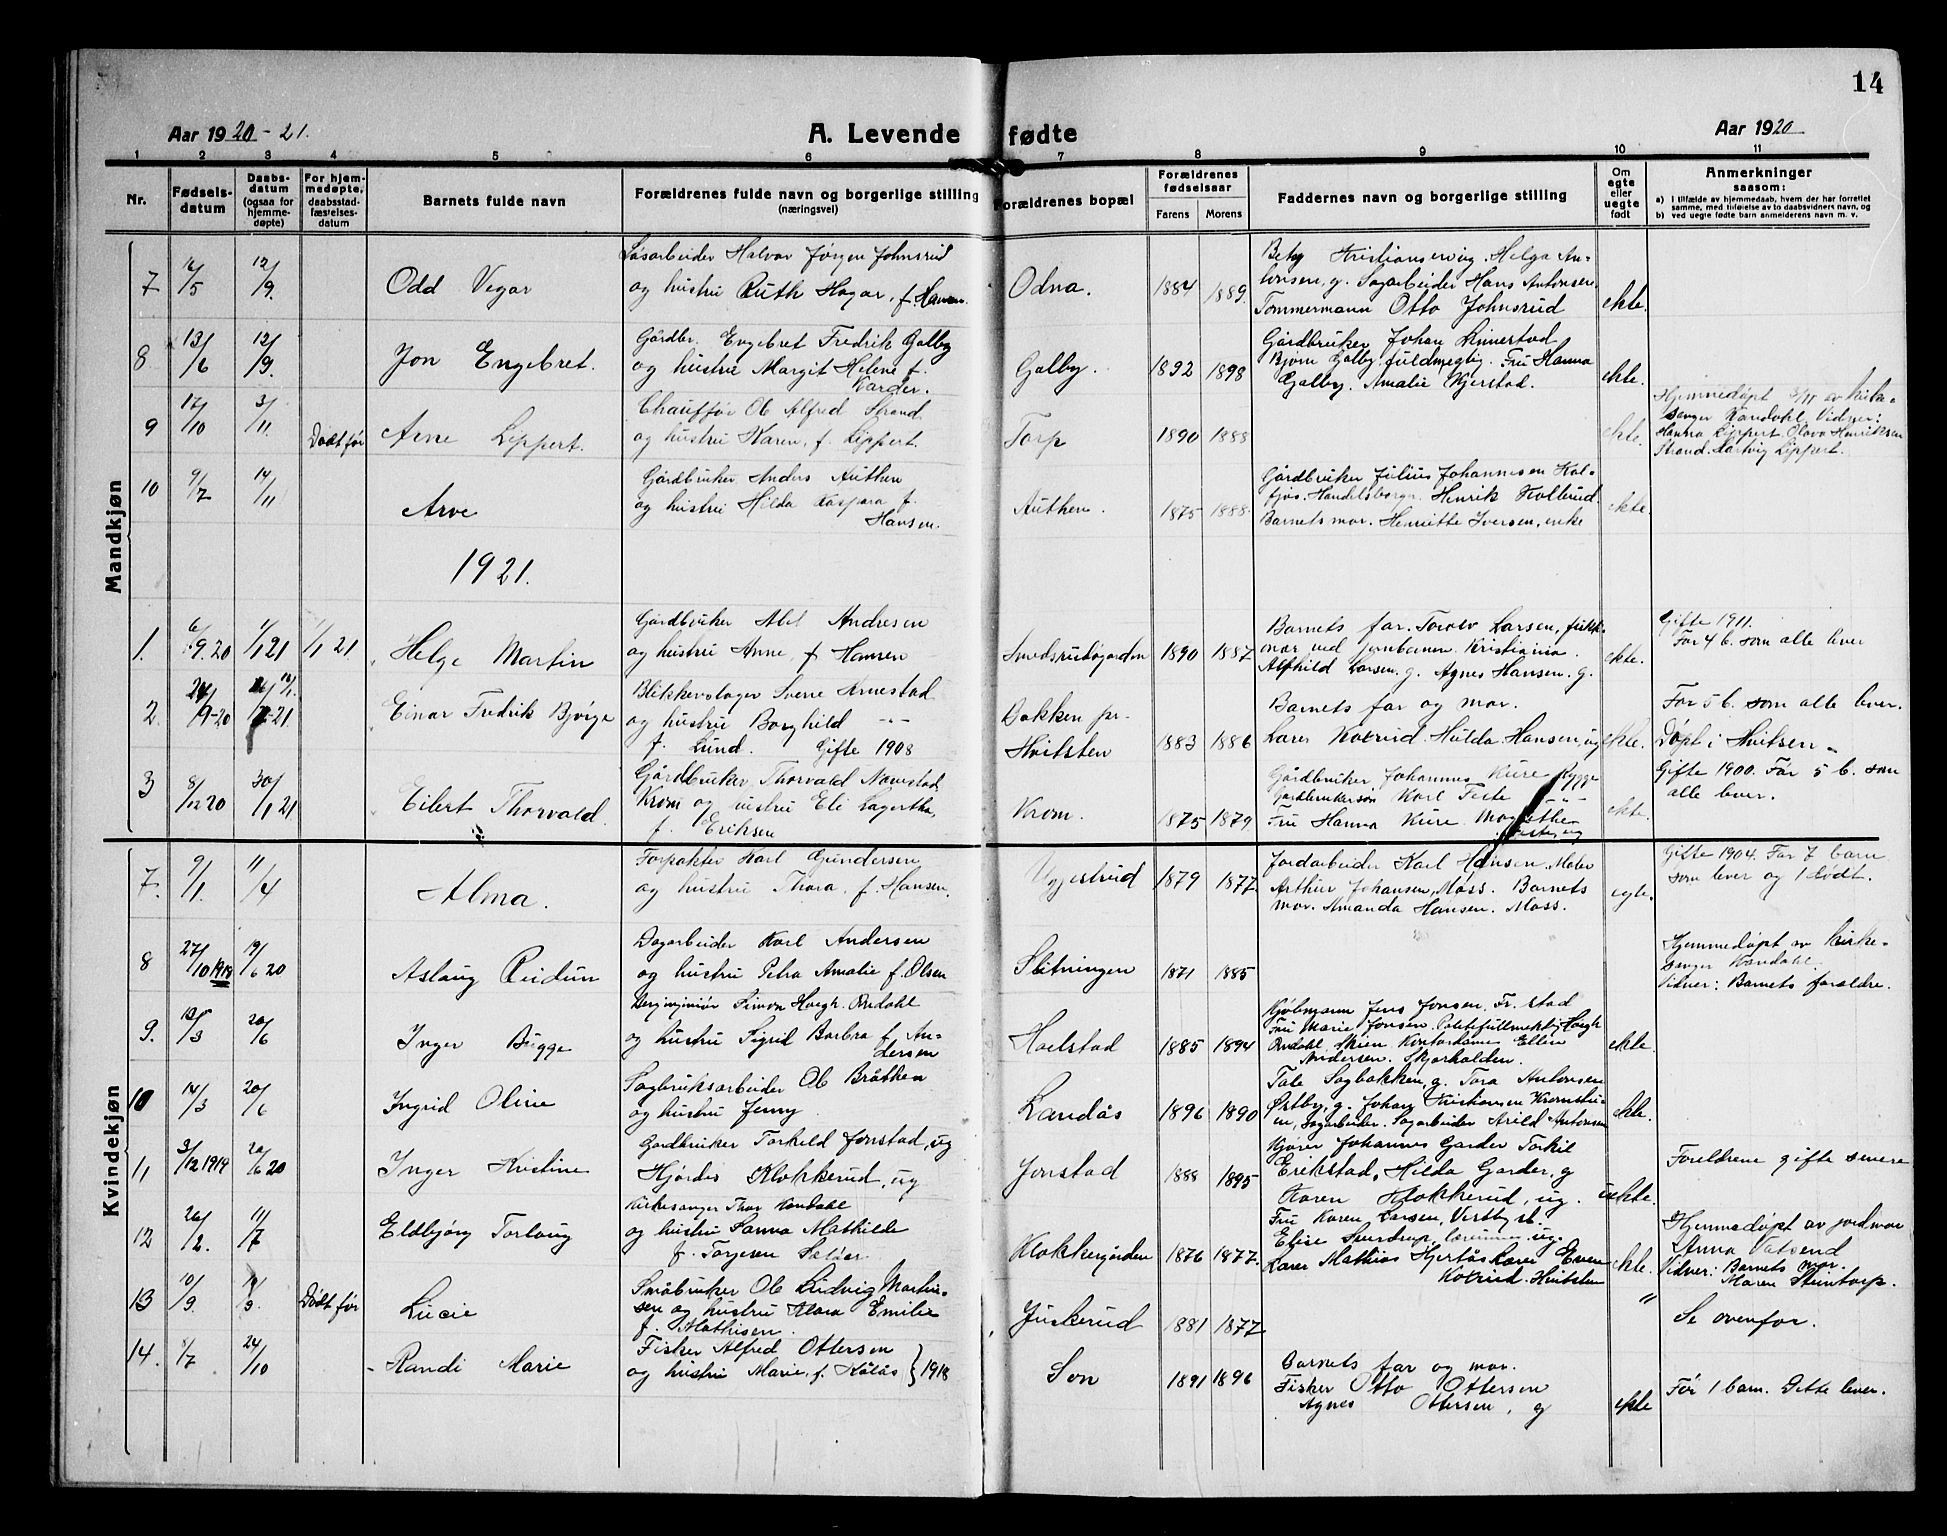 14
Aar 1920-21.
A. Levende fødte
Aar 1920
1 2 3 4 5 6 7 8 9 10 11
Nr.
Fødselsdatum
Daabsdatum (ogsaa for hjemmedøpte)
For hjemmedøpte, daabsstadfæstelsesdatum
Barnets fulde navn
Forældrenes fulde navn og borgerlige stilling (næringsvei)
Forældrenes bopæl
Forældrenes fødselsaar
Farens Morens
Faddernes navn og borgerlige stilling
Om egte eller uegte født
Anmerkninger
saasom:
a) i tilfælde av hjemmedaab, hvem der har forrettet samme, med tilføielse av to daabsvidners navn, og
b) ved uegte fødte barn anmelderens navn m. v.
Mandkjøn
7 16/5 12/9. Odd Vegar
Halvor Jørgen Johnsrud
og hustru Ruth Hagar, f. Hansen
Odna. 1884 1889.
Betsy Kristiansen, ug. Helga An-
tonsen, g. Sagarbeider Hans Antonsen,
Tommermann Otto Johnsrud
ekte.
8 13/6 12/9. Jon Engebret.
Gårdbr. Engebret Fredrik Galby
og hustru Margit Helene f.
Garder.
Galby. 1892 1898
Gårdbruker Johan Linnestad
Bjørn Galby, fuldmegtig. Fru Hanna
Galby. Amalie Kjerstad.
ekte.
9 17/10 3/11. Dødt før Arne Lippert.
Chauffør Ole Alfred Strand
og hustru Karen, f. Lippert.
Torp 1890 1888
ekte.
Hjemmedøpt 3/11 av kirke-
sanger Kandahl. Vidner:
Hanna Lippert, Olava Henriksen
Strand. Hartvig Lippert.
10 9/7 14/11 Arve
Gårdbruker Anders Authen
og hustru Hilda Kaspara f.
Hansen.
Authen. 1875 1888.
Gårdbruker Julius Johannesen Kol-
fjøs. Handelsborger Henrik Kolterud
Barnets mor. Henriette Iversen, enke
ekte.
1921.
1. 6/9.20 1/1 21 1/1 21 Helge Martin
Gårdbruker Abel Andresen
og hustru Anne, f. Hansen
Smedsrudgarden 1890 1887.
Barnets far. Torolv Larsen, funk-
nær ved jernbanen Kristiania.
Alfhild Larsen. g. Agnes Hansen. g.
ekte.
Gifte 1911.
Før 4 b. som alle lever
2. 24/9-20 Einar Fredrik Bjørge
Blikkenslager Sverre Ernestad
og hustru Borghild -"-
f. Lund. Gifte 1908
Bakken pr.
Hvitsten 1883 1886
Barnets far og mor.
Lærer Kokrud. Hulda Hansen, ug
ekte.
Før 5 b. som alle lever.
Døpt i Hvitsten-
3 8/12 20 30/1 21 Eilert Thorvald.
Gårdbruker Thorvald Navestad
Krom og hustru Eli Lagertha,
f. Eriksen
Krom. 1875 1879
Gårdbruker Johannes Kure Rygge
Gårdbrukersøn Karl Feste -"-
Fru Hanna Kure Magnethe
Feste, ug
ekte.
Gifte 1900. Før 5 b. som
alle lever.
Kvindekjøn
7. 9/1. 11/4 Alma.
Forpakter Karl Gundersen
og hustru Thora, f. Hansen.
1879 1877.
Jordarbeider Karl Hansen. Maler
Arthur Johansen, Moss. Barnets
mor. Amanda Hansen. Moss.
egte.
Gifte 1904. Før 7 barn
som lever og 1 dødt.
8 27/10 1919 19/6 20 Aslaug Reidun
Dagarbeider Karl Andersen
og hustru Petra Amalie f. Olsen
Slitningen 1871 1885
Hjemmedøpt av kirke-
sanger Kandahl.
Vidner: Barnets foreldre.
9. 18/3 20/6 Inger Bugge
Bergingeniør Simon Høegh. Omdahl
og hustru Sigrid Barbra f. An-
dersen
Hoelstad 1885 1894
Kjøbmann Jens Jonsen. Fr.stad
Fru Marie Jonsen. Politifullmektig Høegh
Omdahl, Skien Kontordame Ellen
Andersen. Skjærhalden.
ekte.
10 14/3 20/6 Ingrid Oline
Sagbruksarbeider Ole Bråthen
og hustru Jenny
Landås 1896 1890
Tale Sagbakken, g. Tora Antonsen
Østby, g. Johan Kristiansen Kromsti-
en, sagarbeider. Sagarbeider Arild Antonsen
ekte.
11 3/12 1919 20/6 20 Inger Kristine
Gårdbruker Torkild Jonstad, ug
Hjørdis Klokkerud, ug
Jonstad 1888 1895
Kjører Johannes Garder Torkil
Erikstad, Hilda Garder, g
Karen Klokkerud, ug.
uekte.
Foreldrene gifte senere
12 26/2. 11/7 Eldbjørg Torlaug
Kirkesanger Thor Kandahl
og hustru Sanna Mathilde
f. Torgersen
Klokkergården 1876 1877.
Fru Karen Larsen, Vestby st.
Elise Sverdrup, lærerinne, ug.
Lærer Mathias Hjertås. Lærer Even
Kokrud. Hvitsten
ekte.
Hjemmedøpt av jordmor
Anna Vatsend
Vidner: Barnets mor.
Maren Steintorp.
13 10/9. 19/9. Dødt før Lucie
Småbruker Ole Ludvig Martin-
sen og hustru Klara Emilie
f. Mathisen.
Juskerud 1881 1877
"
Se ovenfor.
14. 8/7 24/10 Randi Marie
Fisker Alfred Ottersen
og hustru Marie, f. Kålås } 1918
Son 1891 1896
Barnets far og mor.
Fisker Otto Ottersen
Agnes Ottersen, g
ekte
Før 1 barn. Dette lever.